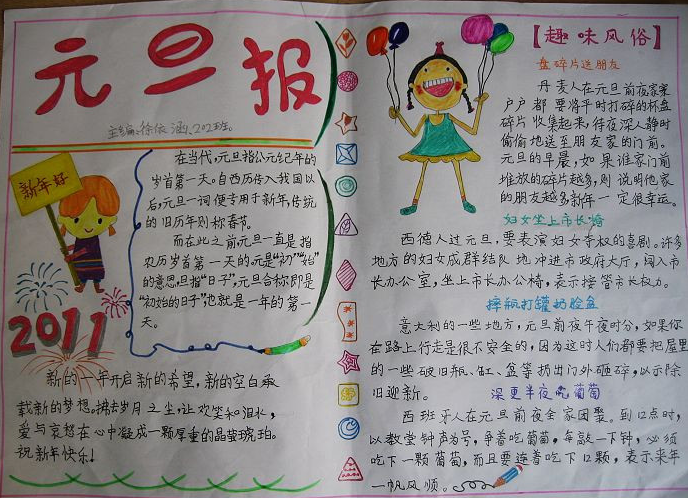 元旦报
主编:徐依涵、202班。
新年好
在当代,元旦指公元纪年的
岁首第一天。自西历传入我国以
后,元旦一词便专用于新年,传统
的旧历年则称春节。
而在此之前元旦一直是指
农历岁首第一天的。元是"初""始"
的意思,旦指"日子",元旦合称即是
"初始的日子",也就是一年的第一
天。
2011
新的一年开启新的希望,新的空白承
载新的梦想。拂去岁月之尘,让欢笑和泪水,
爱与哀愁在心中凝成一颗厚重的晶莹琥珀。
祝新年快乐!
【趣味风俗】
盘碎片送朋友
丹麦人在元旦前夜家家
户户都要将平时打碎的杯盘
碎片收集起来,待夜深人静时
偷偷地送至朋友家的门前。
元旦的早晨,如果谁家门前
堆放的碎片越多,则说明他家
的朋友越多新年一定很幸运。
妇女坐上市长椅
西德人过元旦,要表演妇女夺权的喜剧。许多
地方的妇女成群结队地冲进市政府大厅,闯入市
长办公室,坐上市长办公椅,表示接管市长权力。
摔瓶打罐扔脸盆
意大利的一些地方,元旦前夜午夜时分,如果你
在路上行走是很不安全的,因为这时人们都要把屋里
的一些破旧瓶、缸、盆等扔出门外砸碎,以示除
旧迎新。
深更半夜吃葡萄
西班牙人在元旦前夜全家团聚。到12点时,
以教堂钟声为号,争着吃葡萄,每敲一下钟,必须
吃下一颗葡萄,而且要连着吃下12颗,表示来年
一帆风顺。